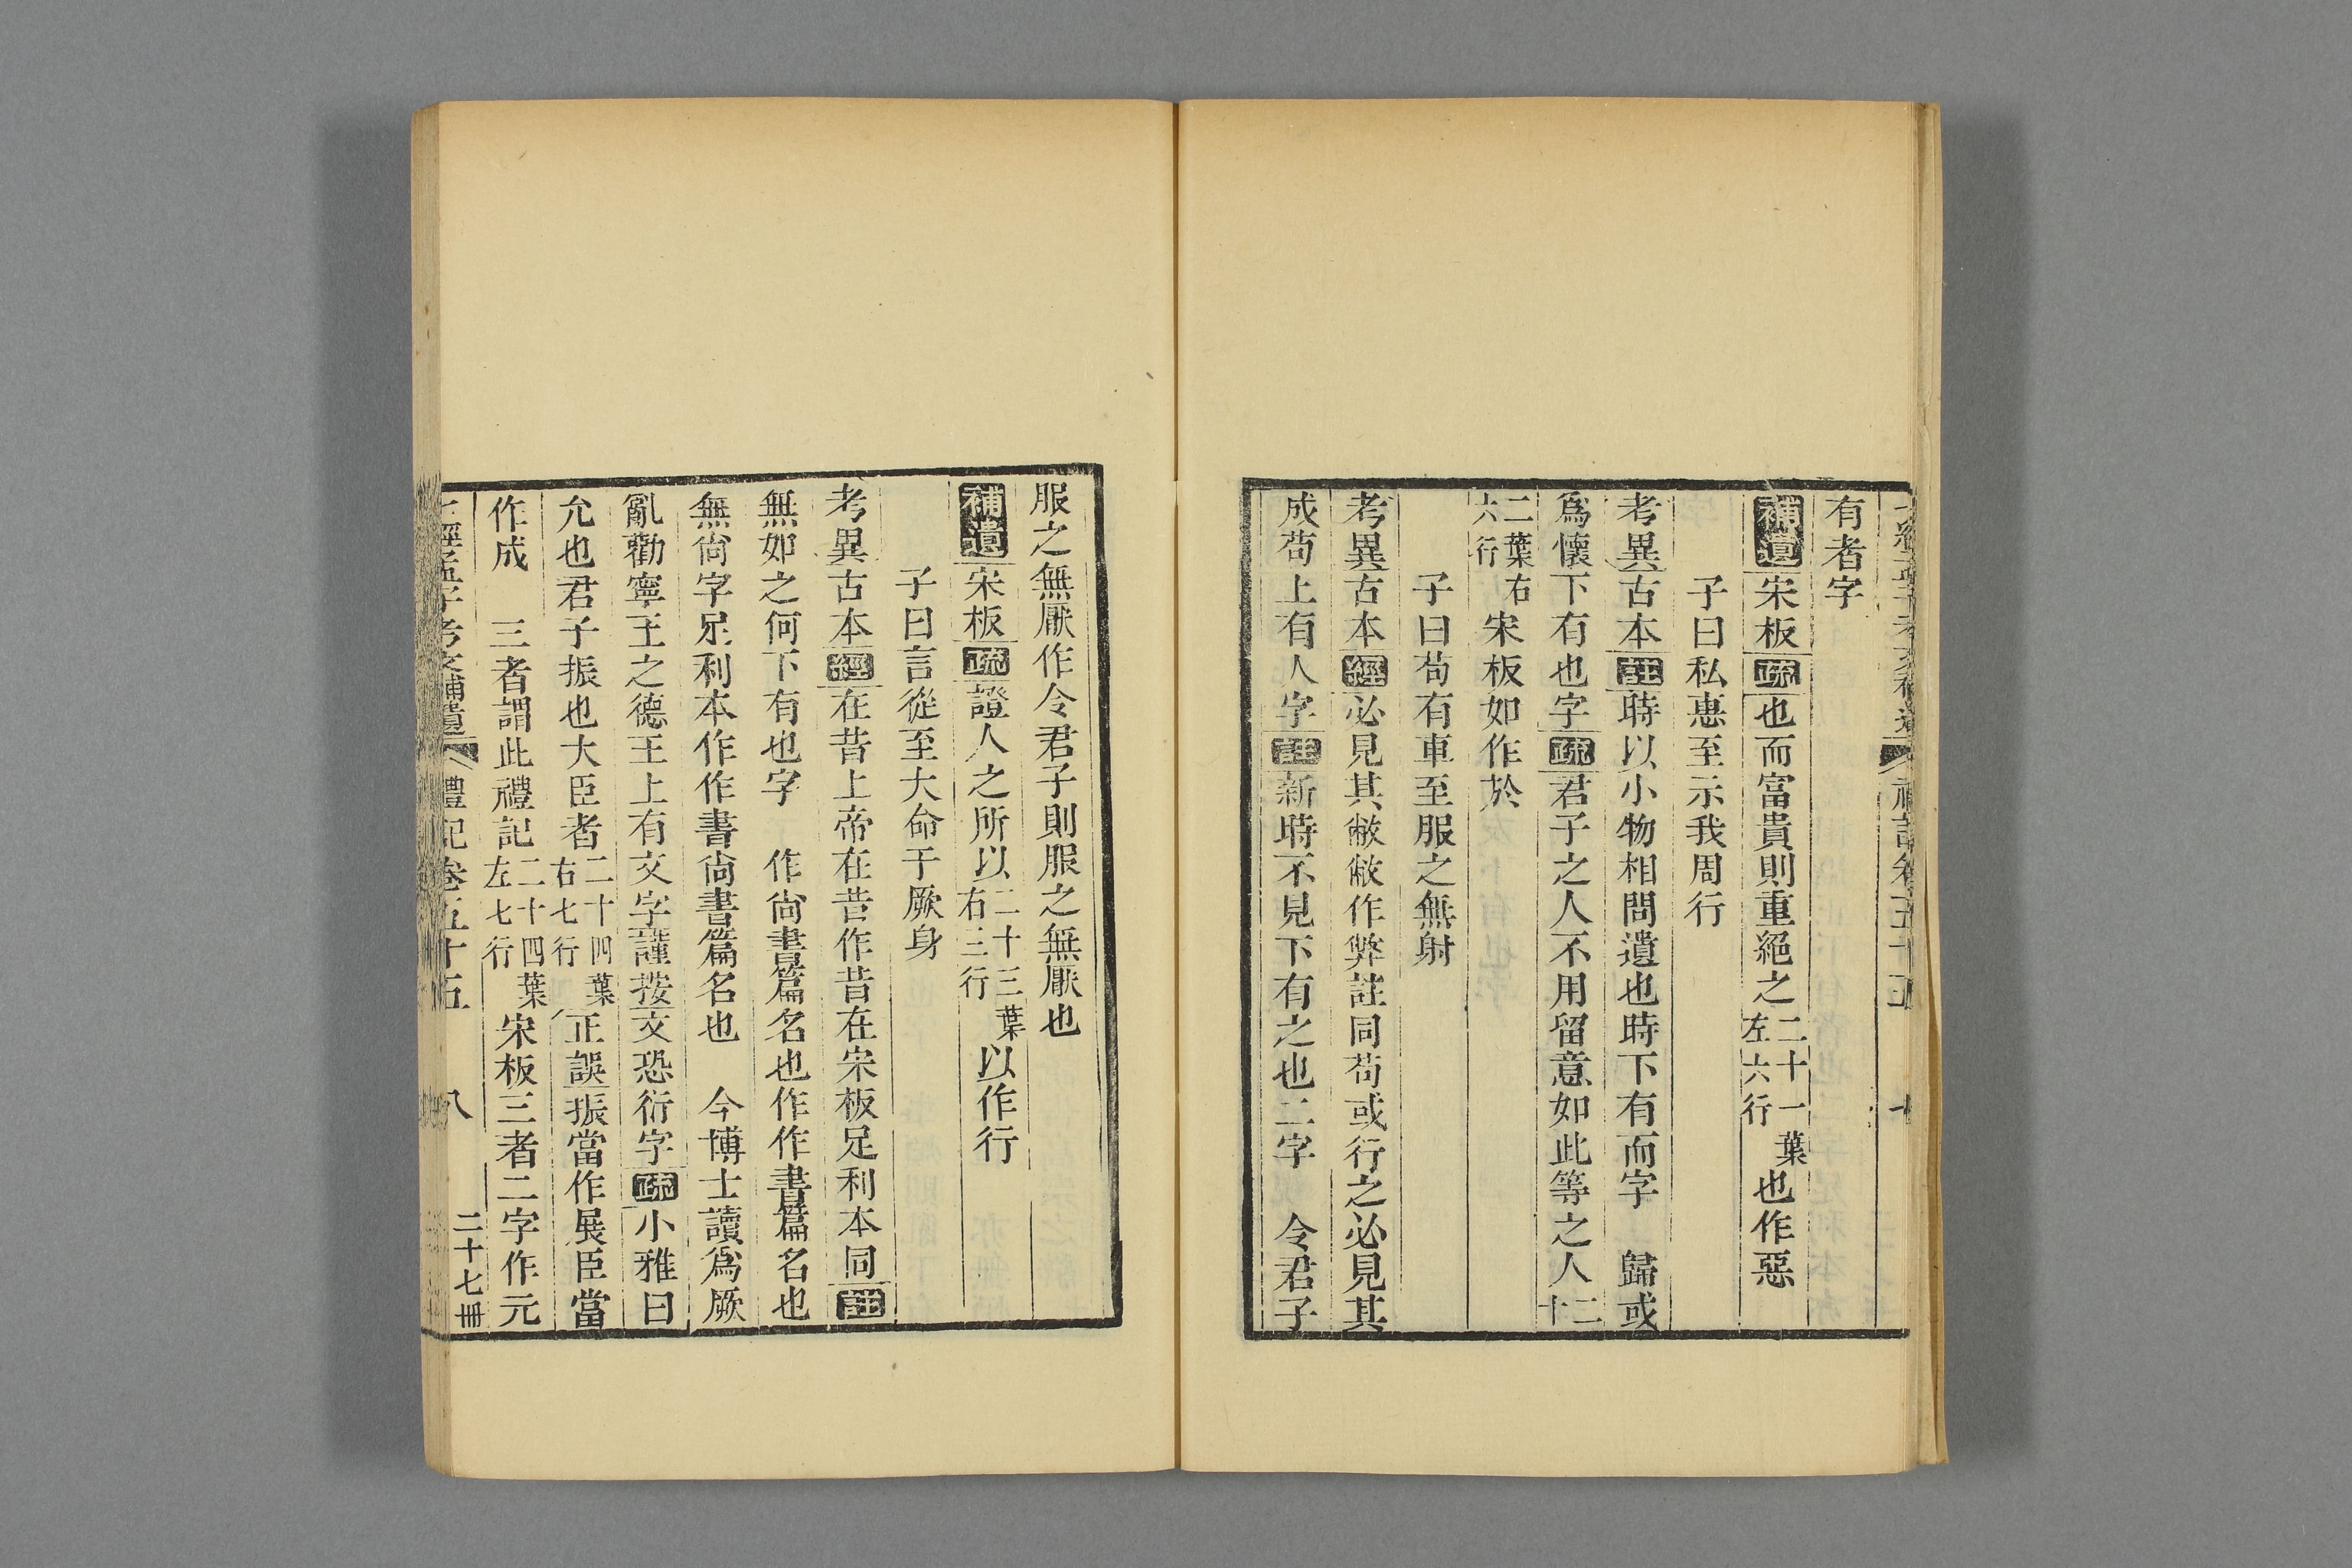 有者字
補遺宋板疏也而富貴則重絕之二十一葉左六行也作惡
子曰私惠至示我周行
考異古本註時以小物相問遺也時下有而字　歸或
爲懷下有也字疏君子之人不用留意如此等之人二十
二葉右六行宋板如作於
子曰苟有車至服之無射
考異古本經必見其敝敝作弊註同苟或行之必見其
成苟上有人字註新時不見下有之也二字　令君子
服之無厭作令君子則服之無厭也
補遺宋板疏證人之所以二十三葉右三行以作行
子曰言從至大命于厥身
考異古本經在昔上帝在昔作昔在宋板足利本同註
無如之何下有也字　作尙書篇名也作作書篇名也
無尙字足利本作作書尙書篇名也　今博士讀爲厥
亂勸寧王之德王上有文字謹按文恐衍字疏小雅曰
允也君子振也大臣者二十四葉右七行正誤振當作展臣當
作成　三者謂此禮記二十四葉左七行宋板三者二字作元
七經孟子考文補遺　禮記卷五十五　八　二十七冊